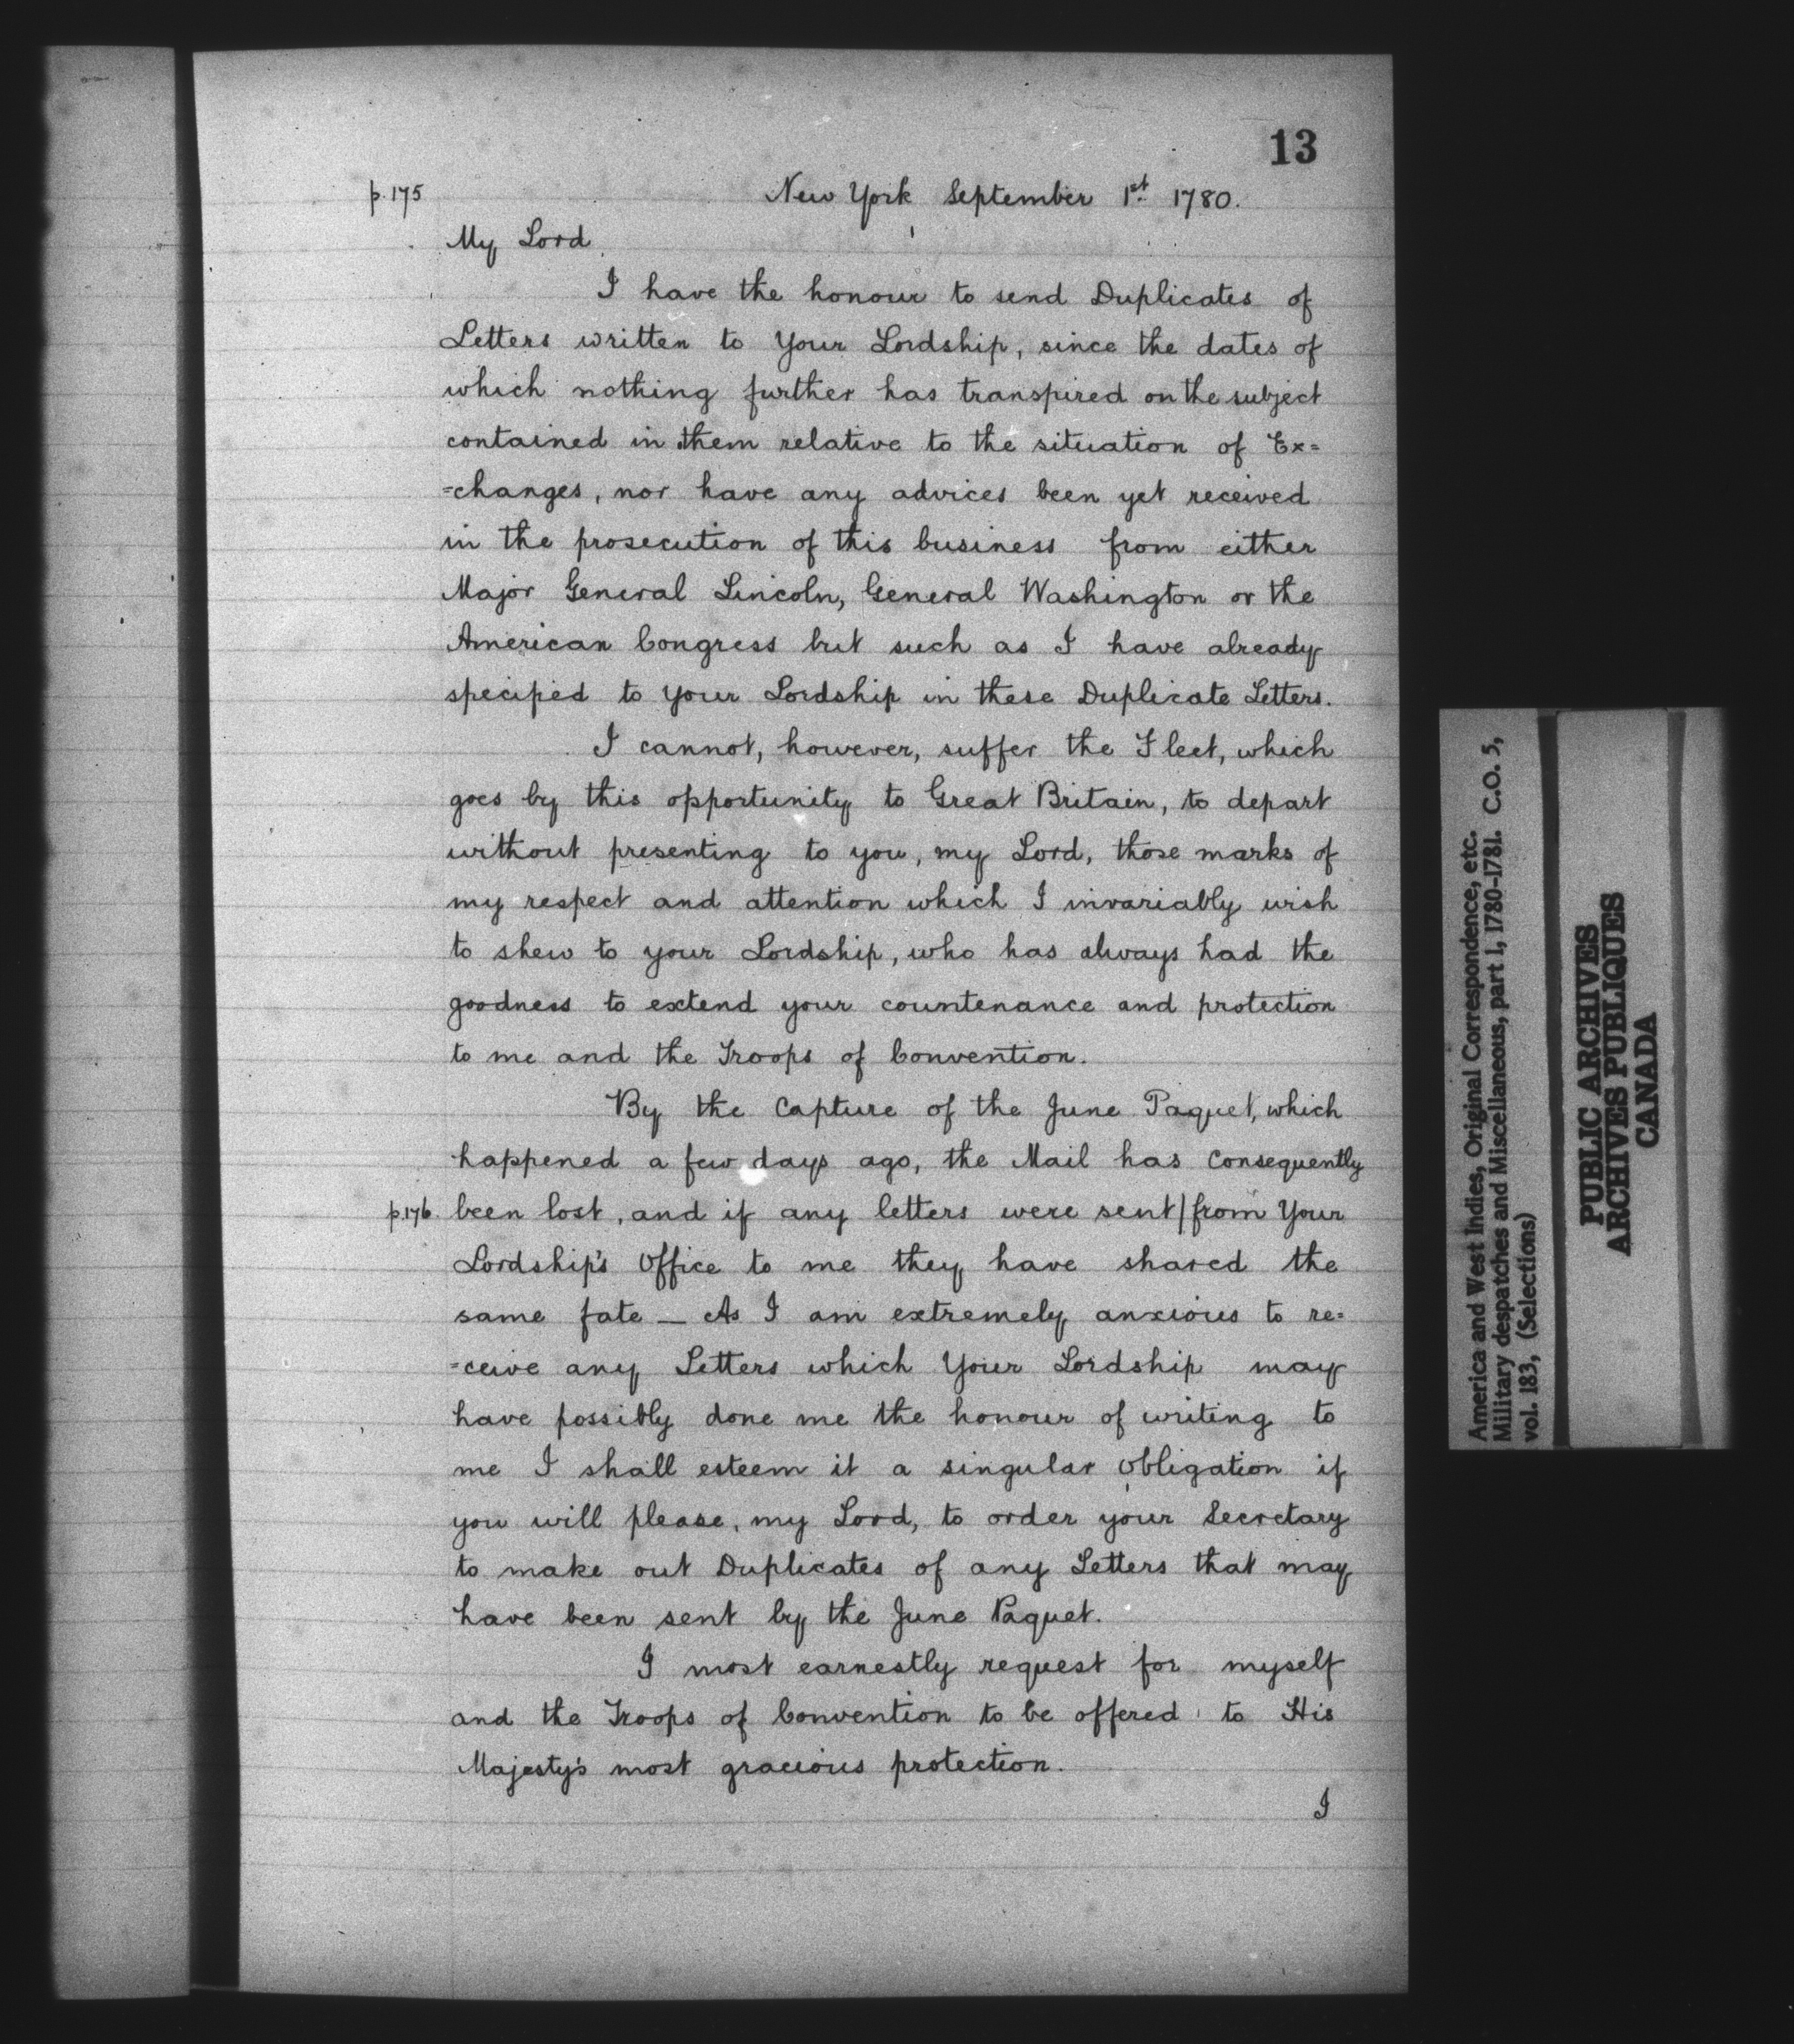 13
p.175 New York September 1st 1780.
My Lord
I have the honour to send Duplicates of
Letters written to Your Lordship, since the dates of
which nothing further has transpired on the subject
contained in them relative to the situation of Ex=
=changes, nor have any advices been yet received
in the prosecution of this business from either
Major General Lincoln, General Washington or the
American Congress but such as I have already
specified to your Lordship in these Duplicate Letters.
I cannot, however, suffer the Fleet, which
goes by this opportunity to Great Britain, to depart
without presenting to you, my Lord, those marks of
my respect and attention which I invariably wish
to shew to your Lordship, who has always had the
goodness to extend your countenance and protection
to me and the Troops of Convention.
By the Capture of the June Paquet, which
happened a few days ago, the Mail has consequently
p.176 been lost, and if any letters were sent|from Your
Lordship's Office to me they have shared the
same fate — As I am extremely anxious to re=
=ceive any Letters which Your Lordship may
have possibly done me the honour of writing to
me I shall esteem it a singular obligation if
you will please, my Lord, to order your Secretary
to make out Duplicates of any Letters that may
have been sent by the June Paquet.
I most earnestly request for myself
and the Troops of Convention to be offered to His
Majesty's most gracious protection.
I
America and West Indies, Original Correspondence, etc.
Military despatches and Miscellaneous, part 1, 1780-1781. C.O. 5,
vol. 183, (Selections)
PUBLIC ARCHIVES
ARCHIVES PUBLIQUES
CANADA